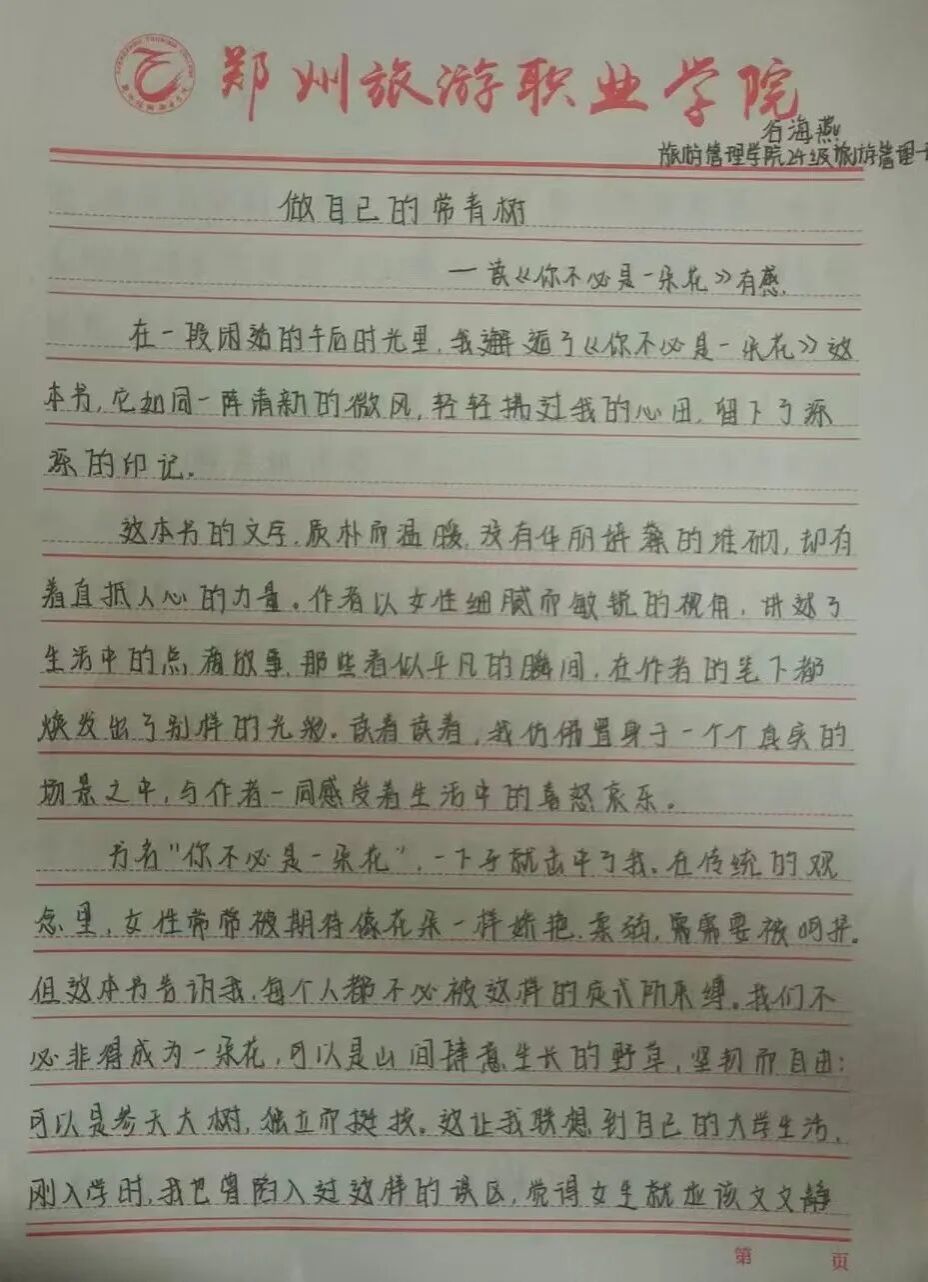 郑州旅游职业学院
石海燕
旅游管理学院24级旅游管理一
做自己的常青树
一读《你不必是一朵花》有感.
在一段闲暇的午后时光里,我邂逅了《你不必是一朵花》这
本书,它如同一阵清新的微风,轻轻拂过我的心田,留下了深
深的印记。
这本书的文字,质朴而温暖,没有华丽辞藻的堆砌,却有
着直抵人心的力量。作者以女性细腻而敏锐的视角,讲述了
生活中的点滴故事,那些看似平凡的瞬间,在作者的笔下都
焕发出了别样的光彩。读着读着,我仿佛置身于一个个真实的
场景之中,与作者一同感受着生活中的喜怒哀乐。
书名"你不必是一朵花",一下子就击中了我。在传统的观
念里,女性常常被期待像花朵一样娇艳、柔弱,需需要被呵护。
但这本书告诉我,每个人都不必被这样的定式所束缚。我们不
必非得成为一朵花,可以是山间肆意生长的野草,坚韧而自由;
可以是参天大树,独立而挺拔。这让我联想到自己的大学生活,
刚入学时,我也曾陷入过这样的误区,觉得女生就应该文文静
第 页